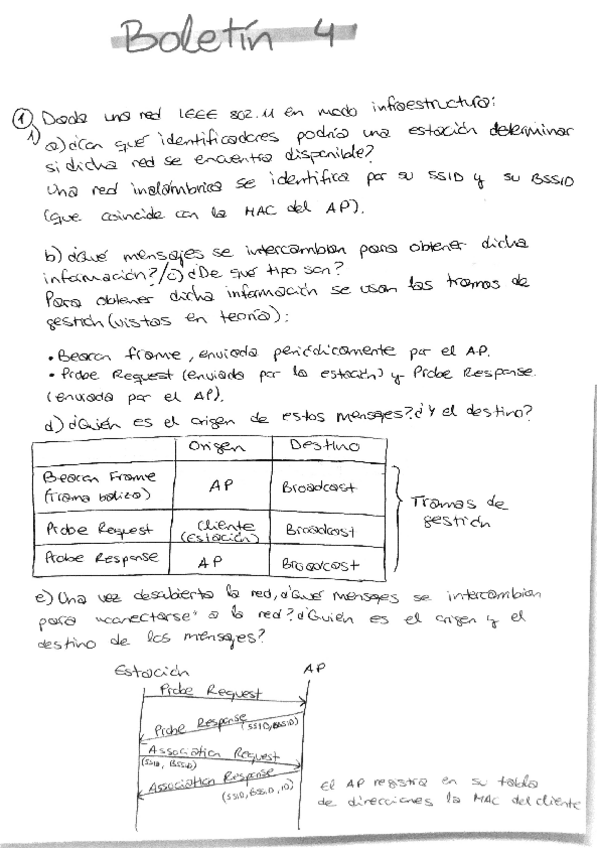 Boletín 4
① Dada una red IEEE 802.11 en modo infraestructura:
1) a) ¿Con qué identificadores podría una estación determinar
si dicha red se encuentra disponible?
Una red inalámbrica se identifica por su SSID y su BSSID
(que coincide con la MAC del AP).
b) ¿Qué mensajes se intercambian para obtener dicha
información? / c) ¿De qué tipo son?
Para obtener dicha información se usan las tramas de
gestión (vistas en teoría):
• Beacon frame, enviada periódicamente por el AP.
• Probe Request (enviada por la estación) y Probe Response.
(enviada por el AP).
d) ¿Quién es el origen de estos mensajes? ¿Y el destino?
Origen Destino
Beacon Frame
(trama baliza) AP Broadcast
Probe Request Cliente
(Estación) Broadcast
Probe Response AP Broadcast
Tramas de
gestión
e) Una vez descubierta la red, ¿qué mensajes se intercambian
para "conectarse" a la red? ¿Quién es el origen y el
destino de los mensajes?
Estación AP
Probe Request
Probe Response (SSID, BSSID)
Association Request
(SSID, BSSID)
Association Response
(SSID, BSSID, ID)
El AP registra en su tabla
de direcciones la MAC del cliente